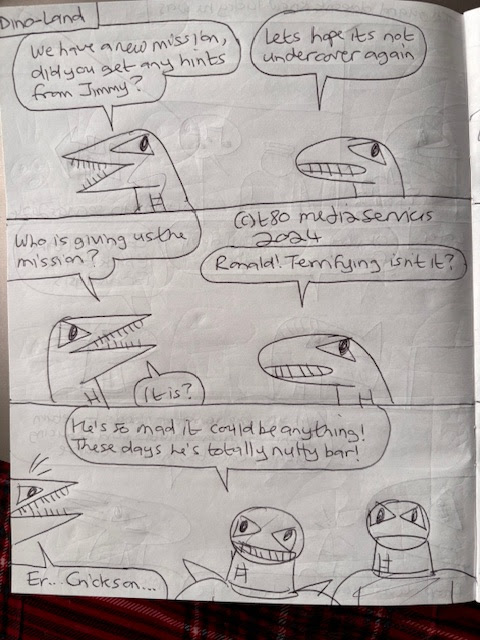 Dino-Land
We have a new mission,
did you get any hints
from Jimmy?
Lets hope its not
undercover again
(c) t80 media services
2024
Who is giving us the
mission?
Ronald! Terrifying isnt it?
It is?
He's so mad it could be anything!
These days he's totally nutty bar!
Er.. Crickson...